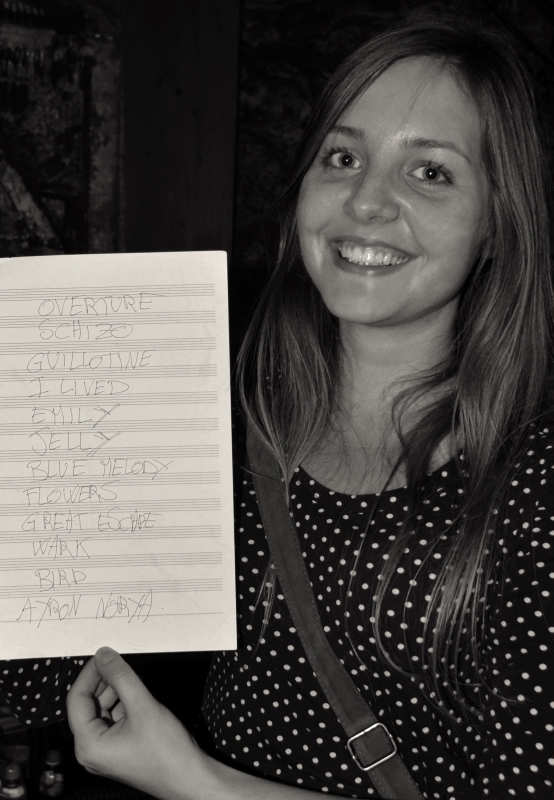 OVERTURE
SCHIZO
GUILLOTINE
I LIVED
EMILY
JELLY
BLUE MELODY
FLOWERS
GREAT ESCAPE
WARK
BIRD
AYRON